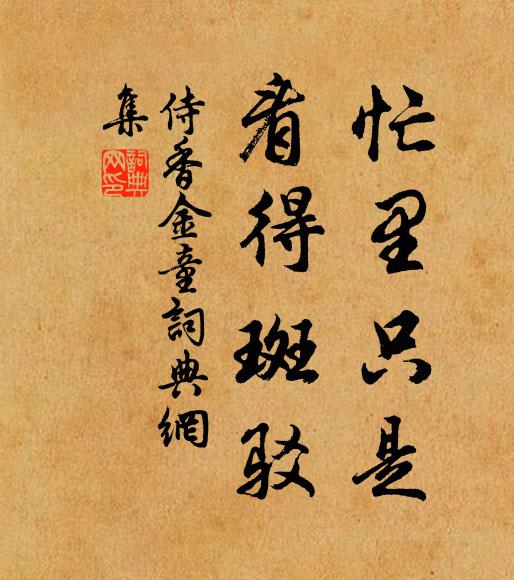 忙里只是
看得斑駁
侍香金童詞典網
集
詞典網印